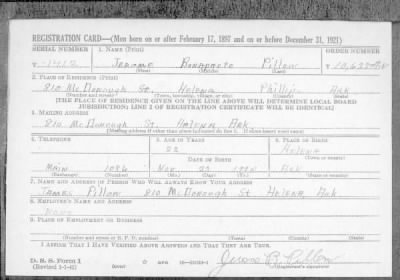 REGISTRATION CARD—(Men born on or after February 17, 1897 and on or before December 31, 1921)
SERIAL NUMBER 1. NAME (Print) ORDER NUMBER
T- 1412 Jerome Pillow T
(First) (Middle) (Last)
2. PLACE OF RESIDENCE (Print)
810 McDonough St. Helena Phillips Ark
(Number and street) (Town, township, village, or city) (County) (State)
[THE PLACE OF RESIDENCE GIVEN ON THE LINE ABOVE WILL DETERMINE LOCAL BOARD
JURISDICTION; LINE 2 OF REGISTRATION CERTIFICATE WILL BE IDENTICAL]
3. MAILING ADDRESS
810 McDonough St. Helena Ark
[Mailing address if other than place indicated on line 2. If same insert word same]
4. TELEPHONE 5. AGE IN YEARS 6. PLACE OF BIRTH
22 Helena
DATE OF BIRTH (Town or county)
Main Nov. Ark
(Exchange) (Number) (Mo.) (Day) (Yr.) (State or country)
7. NAME AND ADDRESS OF PERSON WHO WILL ALWAYS KNOW YOUR ADDRESS
James Pillow 810 McDonough St Helena, Ark
8. EMPLOYER'S NAME AND ADDRESS
None
9. PLACE OF EMPLOYMENT OR BUSINESS
(Number and street or R. F. D. number) (Town) (County) (State)
I AFFIRM THAT I HAVE VERIFIED ABOVE ANSWERS AND THAT THEY ARE TRUE.
D. S. S. Form 1
(Revised 1-1-42) (over) Jerome B. Pillow
(Registrant's signature)